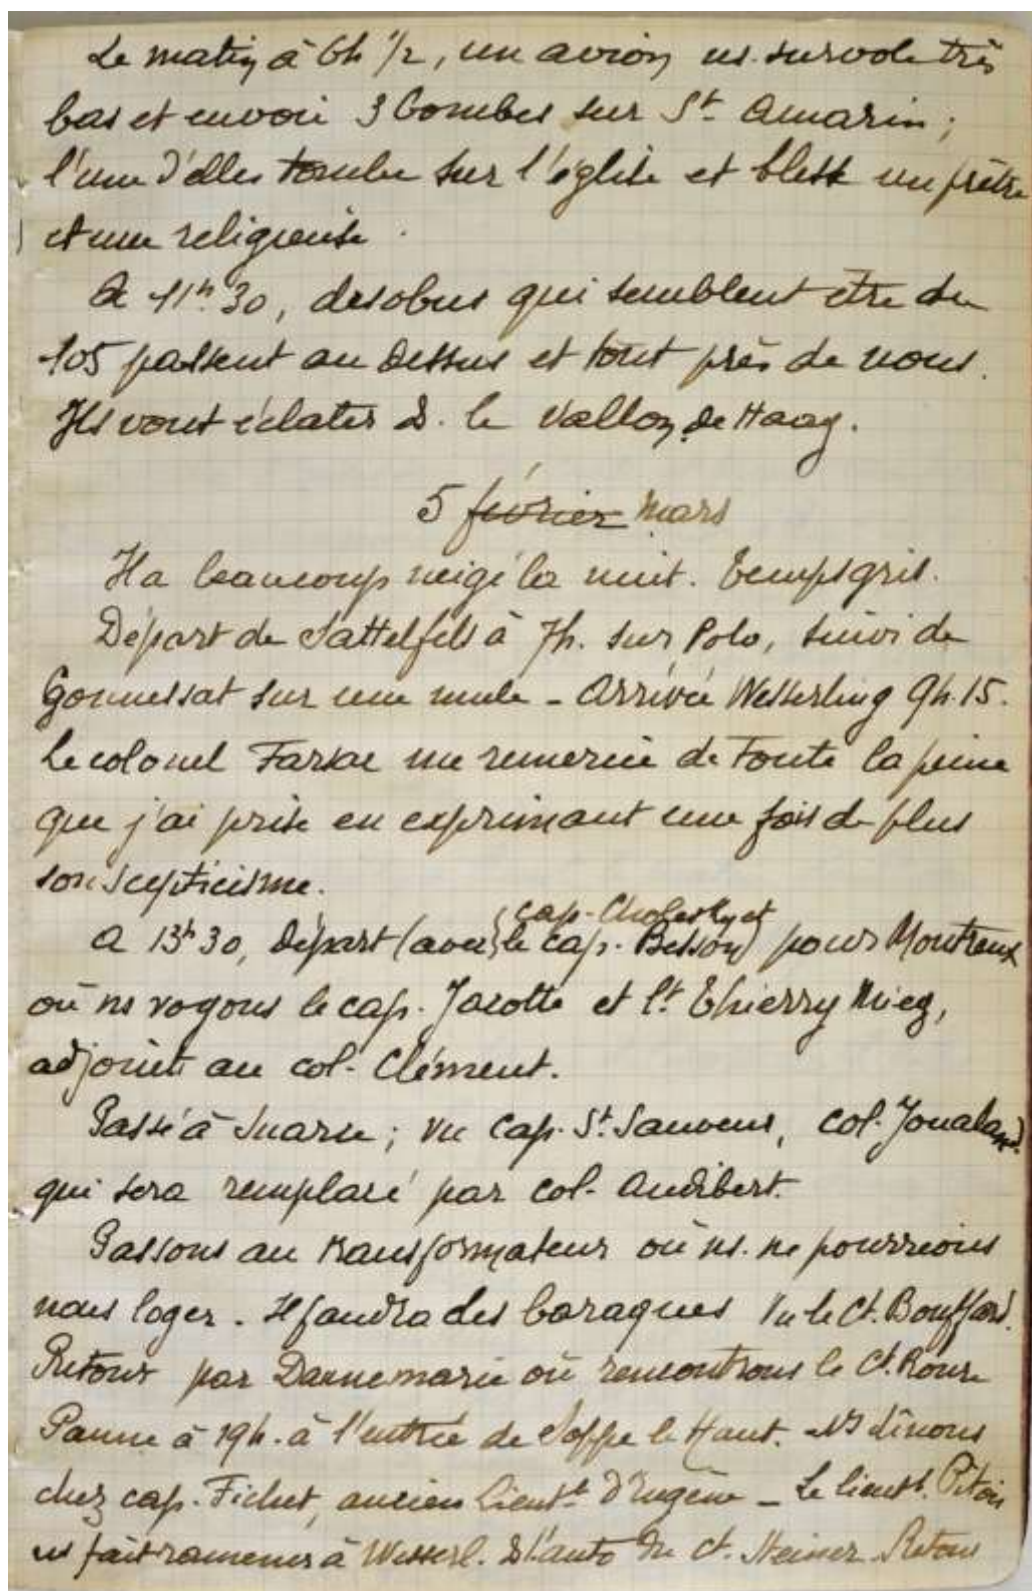 Le matin à 6h 1/2, un avion ns. survole très
bas et envoie 3 bombes sur St. Amarin ;
l'une d'elles tombe sur l'église et blesse un prêtre
et une religieuse.
A 11h 30, des obus qui semblent être du
105 passent au dessus et tout près de nous.
Ils vont éclater d. le vallon de Haag.
5 février Mars
Il a beaucoup neigé la nuit. Temps gris.
Départ de Sattelfels à 7h. sur Polo, suivi de
Gonnessat sur une mule - Arrivée Wesserling 9h.15.
Le colonel me remercie de toute la peine
que j'ai prise en exprimant une fois de plus
son scepticisme.
cap. et
A 13h 30, départ (avec le cap. Besson) pour Montreux
où ns voyons le cap. Jacotte et lt. Thierry Mieg,
adjoint au col. Clément.
Passé à Suarce ; vu cap. St. Sauveur, col.
qui sera remplacé par col. Audibert.
Passons au transformateur où ns. ne pourrions
nous loger. Il faudra des baraques Vu le Ct.
Retour par Dannemarie où rencontrons le Ct.
Panne à 19h. à l'entrée de Soppe le Haut. Ns dînons
chez cap. Fichet, ancien lieutt. d'Eugène - Le lieutt. Pitois
ns fait ramener à Wesserl. d. l'auto du ct. Heiner. Retour